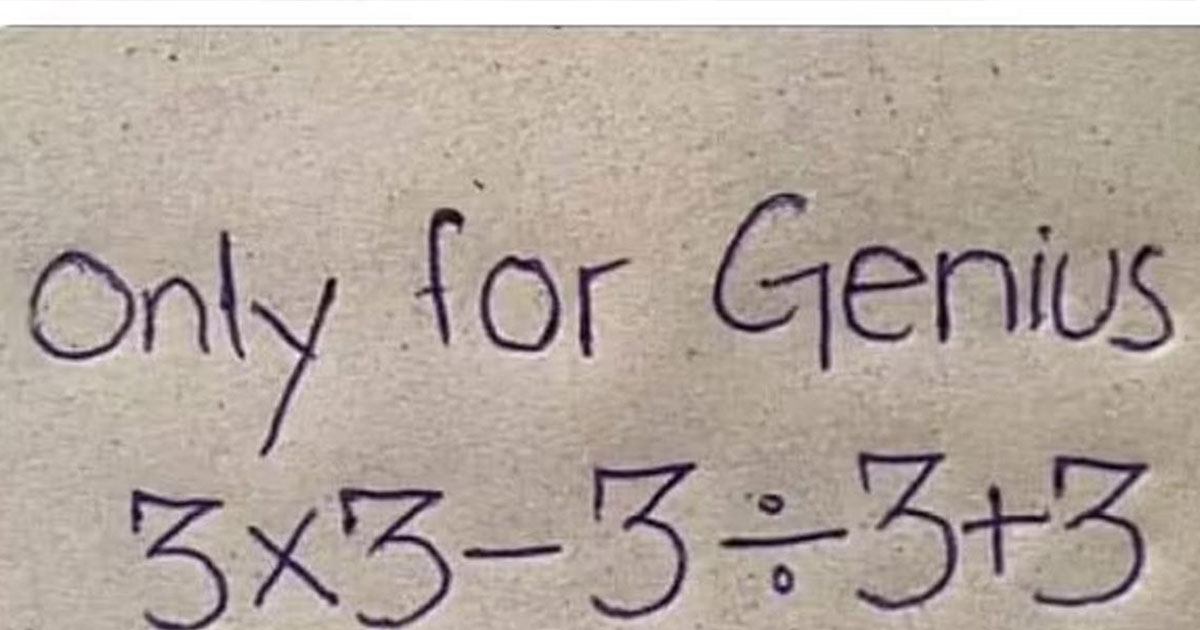 Only for Genius
3×3–3÷3+3